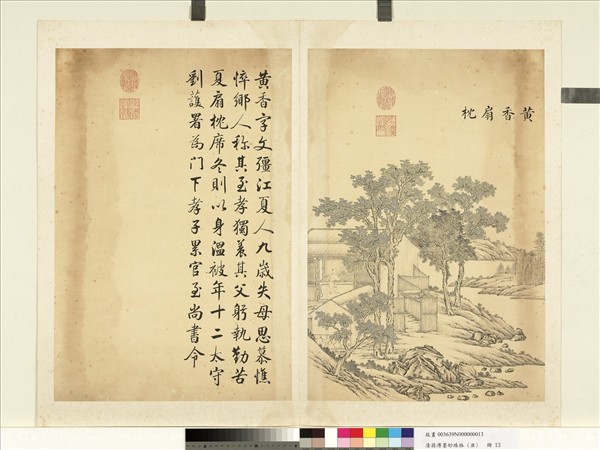 黃香扇枕
黃香字文彊江夏人九歲失母思慕憔
悴鄉人称其至孝獨養其父躬執勤苦
夏扇枕席冬則以身溫被年十二太守
劉護署為門下孝子累官至尚書令
故畫 003639N000000013
13